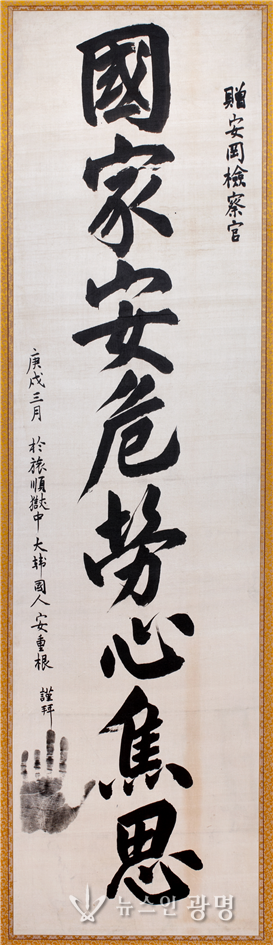 贈安岡檢察官
國家安危勞心焦思
庚戌三月 於旅順獄中 大韓國人 安重根 謹拜
뉴스인 광명